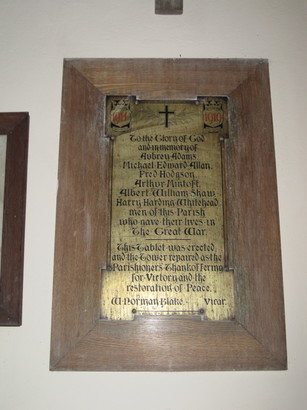 1914 1919
To the Glory of God
and in memory of
Aubrey Adams
Michael Edward Allan
Fred Hodgson
Arthur Mintoft
Albert William Shaw
Harry Harding Whitehead
men of this Parish
who gave their lives in
The Great War.
This Tablet was erected
and the Tower repaired as the
Parishioners Thankoffering
for Victory and the
restoration of Peace.
W. Norman Blake. Vicar.